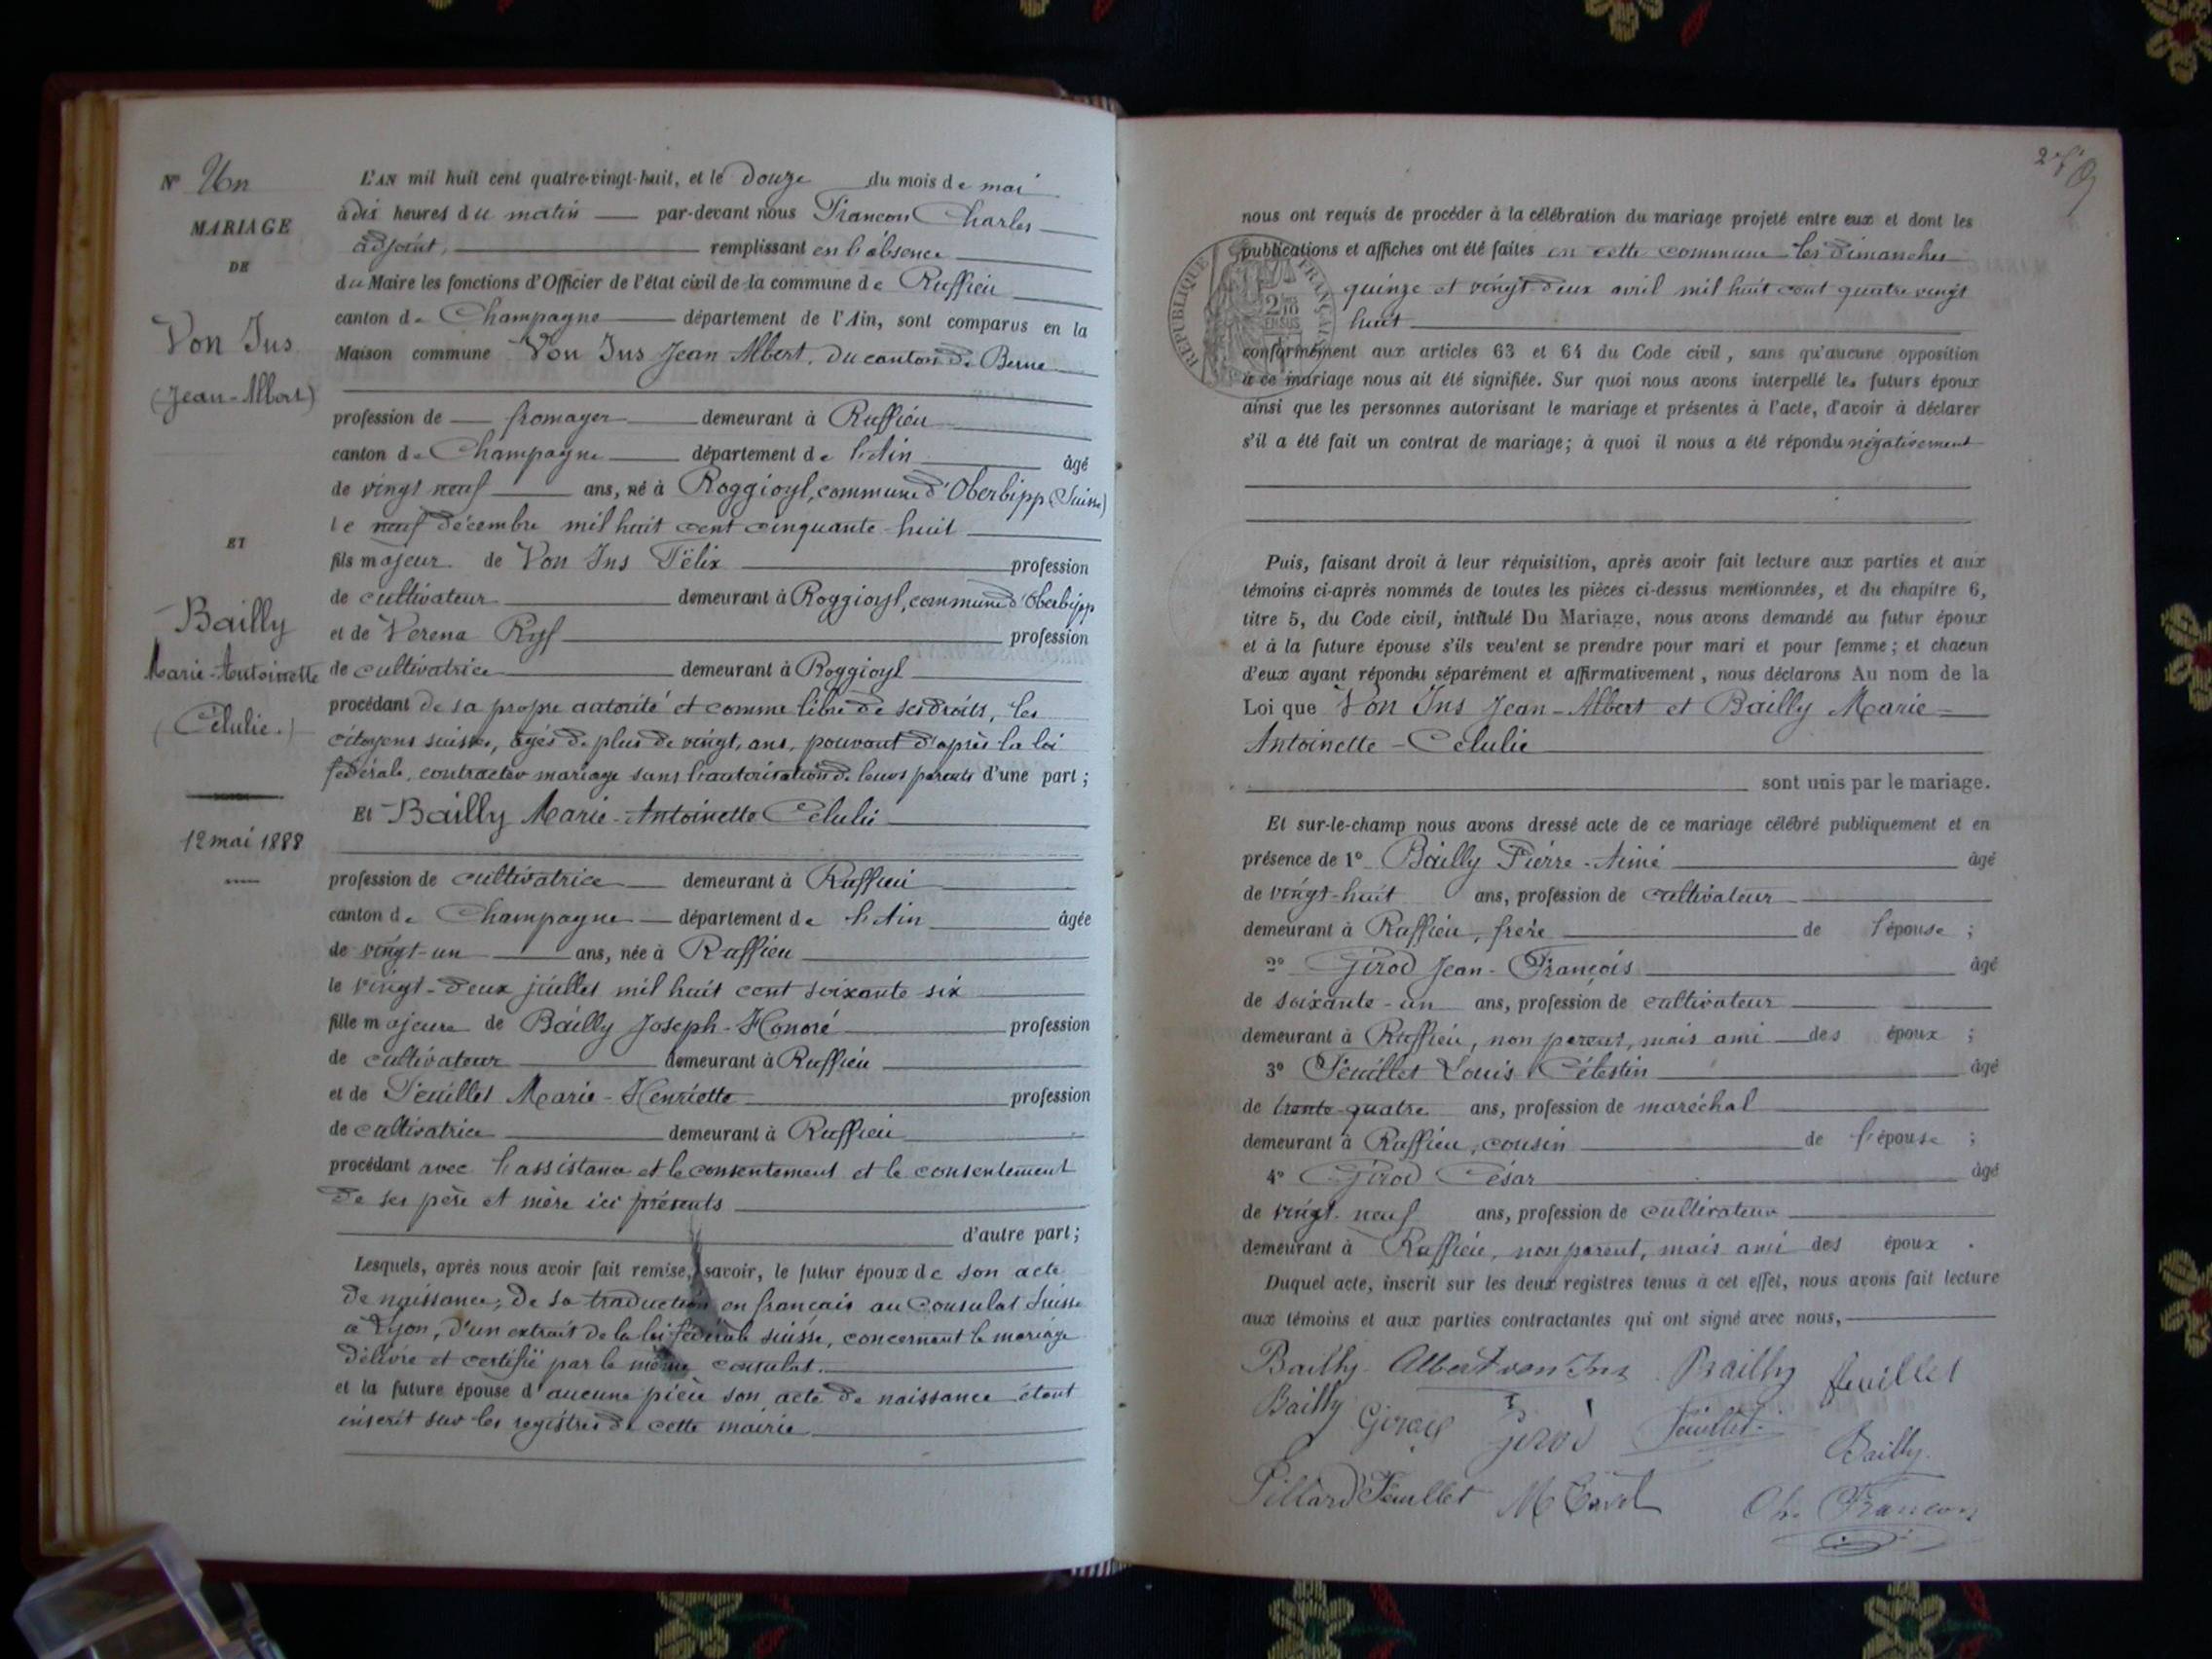 N° Un
MARIAGE
DE
Von Ins
(Jean-Albert)
ET
Bailly
Marie-Antoinette
(Célulie.)
12 mai 1888
L'AN mil huit cent quatre-vingt-huit, et le douze du mois de mai
à dix heures du matin par-devant nous Francon Charles
adjoint, remplissant en l'absence
du Maire les fonctions d'Officier de l'état civil de la commune de Ruffieu
canton de Champagne département de l'Ain, sont comparus en la
Maison commune Von Ins Jean Albert, du canton de Berne
profession de fromager demeurant à Ruffieu
canton de Champagne département de l'Ain âgé
de vingt neuf ans, né à Roggioyl, commune d'Oberbipp (Suisse)
le neuf décembre mil huit cent cinquante-huit
fils majeur de Von Ins Félix profession
de cultivateur demeurant à Roggioyl, commune d'Oberbipp
et de Verena Ryf profession
de cultivatrice demeurant à Roggioyl
procédant de sa propre autorité et comme libre de ses droits, les
citoyens suisses, âgés de plus de vingt ans, pouvant d'après la loi
fédérale, contracter mariage sans l'autorisation de leurs parents d'une part ;
Et Bailly Marie-Antoinette Célulie
profession de cultivatrice demeurant à Ruffieu
canton de Champagne département de l'Ain âgée
de vingt-un ans, née à Ruffieu
le vingt-deux juillet mil huit cent soixante six
fille majeure de Bailly Joseph-Honoré profession
de cultivateur demeurant à Ruffieu
et de Feuillet Marie-Henriette profession
de cultivatrice demeurant à Ruffieu
procédant avec l'assistance et le consentement et le consentement
de ses père et mère ici présents
d'autre part ;
Lesquels, après nous avoir fait remise, savoir, le futur époux de son acte
de naissance, de sa traduction en français au Consulat Suisse
à Lyon, d'un extrait de la loi fédérale suisse, concernant le mariage
délivré et certifié par le même consulat.
et la future épouse d'aucune pièce son acte de naissance étant
inscrit sur les registres de cette mairie
nous ont requis de procéder à la célébration du mariage projeté entre eux et dont les
publications et affiches ont été faites en cette commune les dimanches
quinze et vingt-deux avril mil huit cent quatre vingt
huit
conformément aux articles 63 et 64 du Code civil, sans qu'aucune opposition
à ce mariage nous ait été signifiée. Sur quoi nous avons interpellé les futurs époux
ainsi que les personnes autorisant le mariage et présentes à l'acte, d'avoir à déclarer
s'il a été fait un contrat de mariage ; à quoi il nous a été répondu négativement
Puis, faisant droit à leur réquisition, après avoir fait lecture aux parties et aux
témoins ci-après nommés de toutes les pièces ci-dessus mentionnées, et du chapitre 6,
titre 5, du Code civil, intitulé Du Mariage, nous avons demandé au futur époux
et à la future épouse s'ils veulent se prendre pour mari et pour femme ; et chacun
d'eux ayant répondu séparément et affirmativement, nous déclarons Au nom de la
Loi que Von Ins Jean-Albert et Bailly Marie-
Antoinette-Célulie
sont unis par le mariage.
Et sur-le-champ nous avons dressé acte de ce mariage célébré publiquement et en
présence de 1° Bailly Pierre-Aimé âgé
de vingt-huit ans, profession de cultivateur
demeurant à Ruffieu, frère de l'épouse ;
2° Girod Jean-François âgé
de soixante-un ans, profession de cultivateur
demeurant à Ruffieu, non parent, mais ami des époux ;
3° Feuillet Louis Célestin âgé
de trente-quatre ans, profession de maréchal
demeurant à Ruffieu, cousin de l'épouse ;
4° Girod César âgé
de vingt-neuf ans, profession de cultivateur
demeurant à Ruffieu, non parent, mais ami des époux.
Duquel acte, inscrit sur les deux registres tenus à cet effet, nous avons fait lecture
aux témoins et aux parties contractantes qui ont signé avec nous,
Bailly Albert von Ins Bailly feuillet
Bailly Girod Girod Feuillet
Bailly
Feuillet
Ch. Francon
RÉPUBLIQUE FRANÇAISE